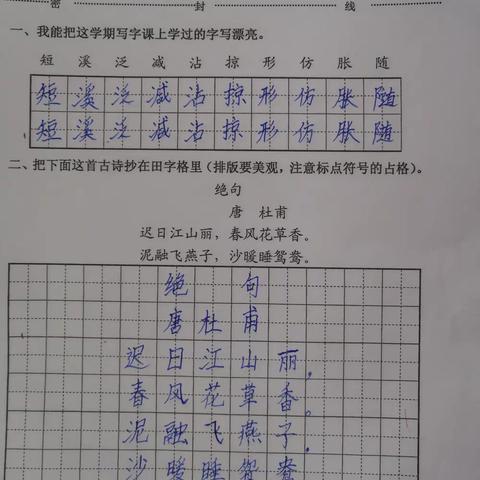 密 封 线
一、我能把这学期写字课上学过的字写漂亮。
短 溪 泛 减 沾 掠 形 仿 胀 随
短 溪 泛 减 沾 掠 形 仿 胀 随
短 溪 泛 减 沾 掠 形 仿 胀 随
二、把下面这首古诗抄在田字格里(排版要美观,注意标点符号的占格)。
绝句
唐 杜甫
迟日江山丽,春风花草香。
泥融飞燕子,沙暖睡鸳鸯。
绝 句
唐 杜 甫
迟 日 江 山 丽,
春 风 花 草 香。
泥 融 飞 燕 子,
沙 暖 睡 鸳 鸯